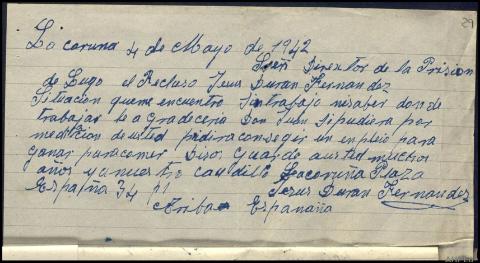 29
La coruna 4 de Mayo de 1942
Señ Director de la Prizion
de Lugo el Recluso Jesus Duran Fernandez
Situacion queme encuentro Sin trabajo nisaber don de
trabajar le a gradeceria Don Juan Sipudiera por
mediacion de usted pudiraconsegir un enpleio para
ganar paracomer Dios Guarde austed muchos
anos yanuestro caudillo Lacoruña Plaza
España 34 p1
Jesus Duran Fernandez
Ariba Espanaña